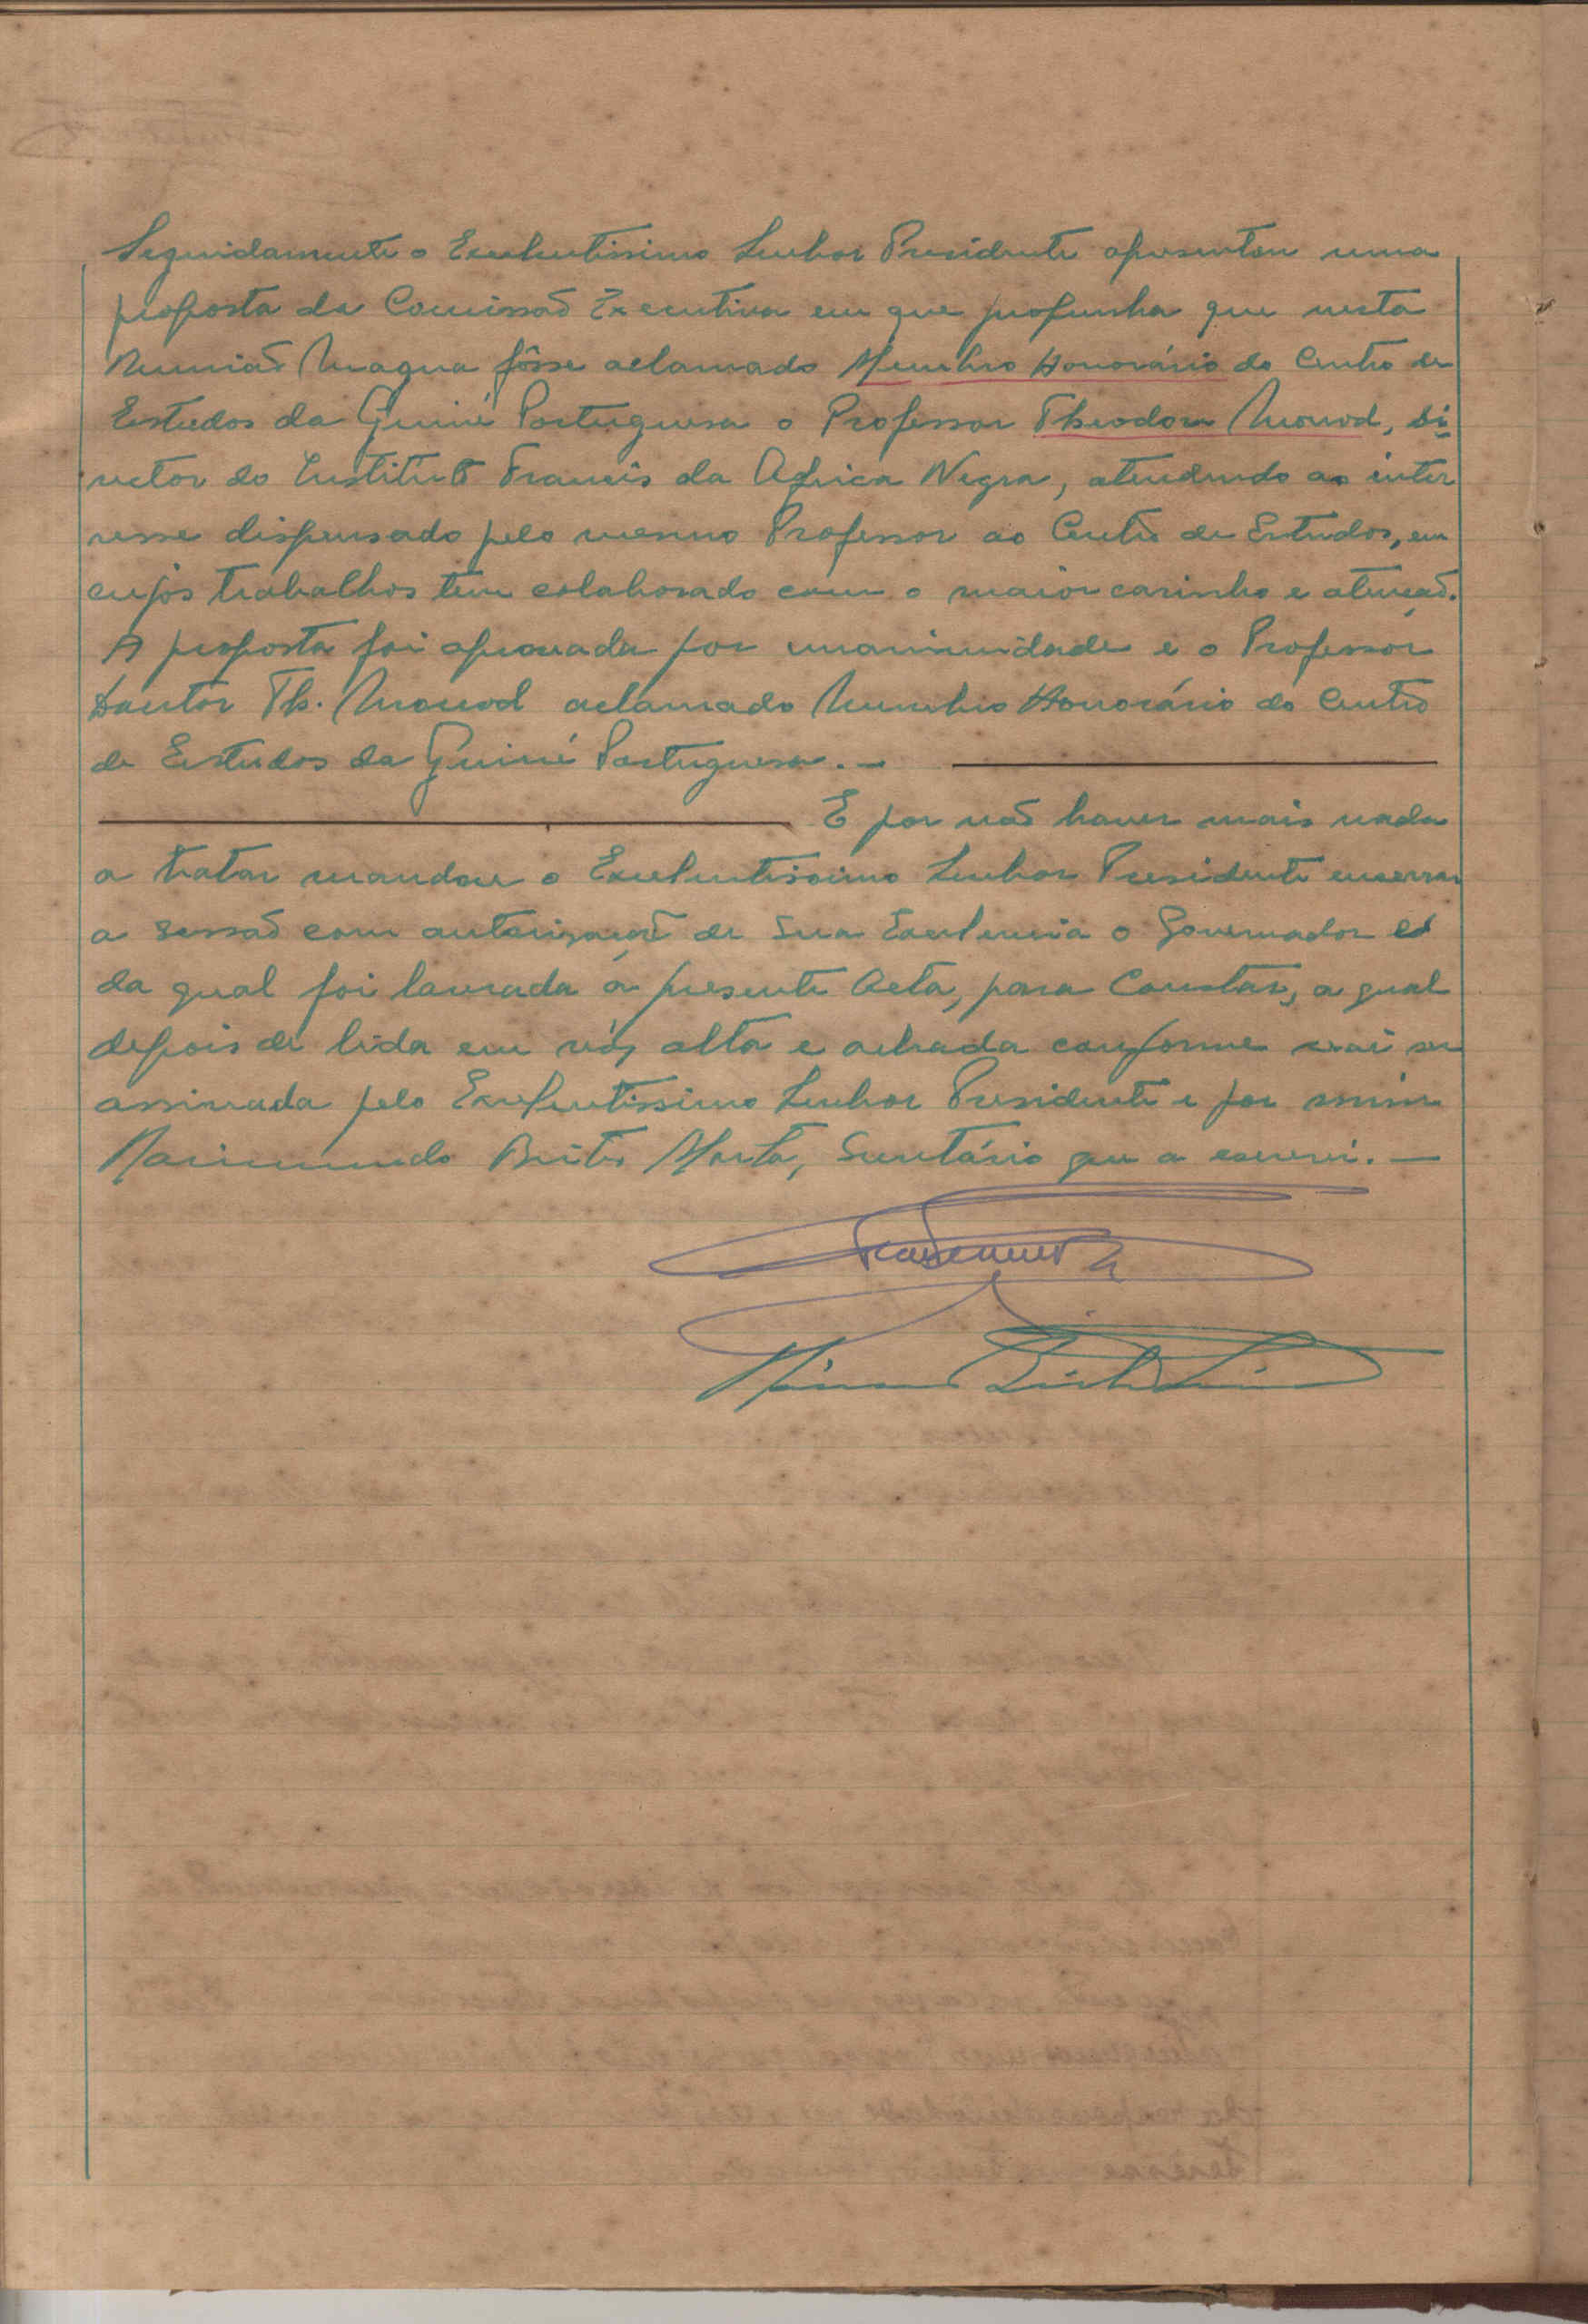 Seguidamente o Excelentissimo Senhor Presidente apresentou uma
proposta da Comissão Executiva em que propunha que nesta
Reunião Magna fôsse aclamado Membro Honorário do Centro de
Estudos da Guiné Portuguesa o Professor Theodore Monod, Di-
rector do Instituto Francês da Africa Negra, atendendo ao inte-
resse dispensado pelo mesmo Professor ao Centro de Estudos, em
cujos trabalhos tem colaborado com o maior carinho e atenção.
A proposta foi aprovada por unanimidade e o Professor
Doutor Th. Monod aclamado Membro Honorário do Centro
de Estudos da Guiné Portuguesa. —
E por não haver mais nada
a tratar mandou o Excelentissimo Senhor Presidente encerrar
a sessão com autorização de Sua Excelencia o Governador
da qual foi lavrada a presente Acta, para Constar, a qual
depois de lida em vóz alta e achada conforme vai ser
assinada pelo Excelentissimo Senhor Presidente e por mim
Brito Secretário que a escrevi. —